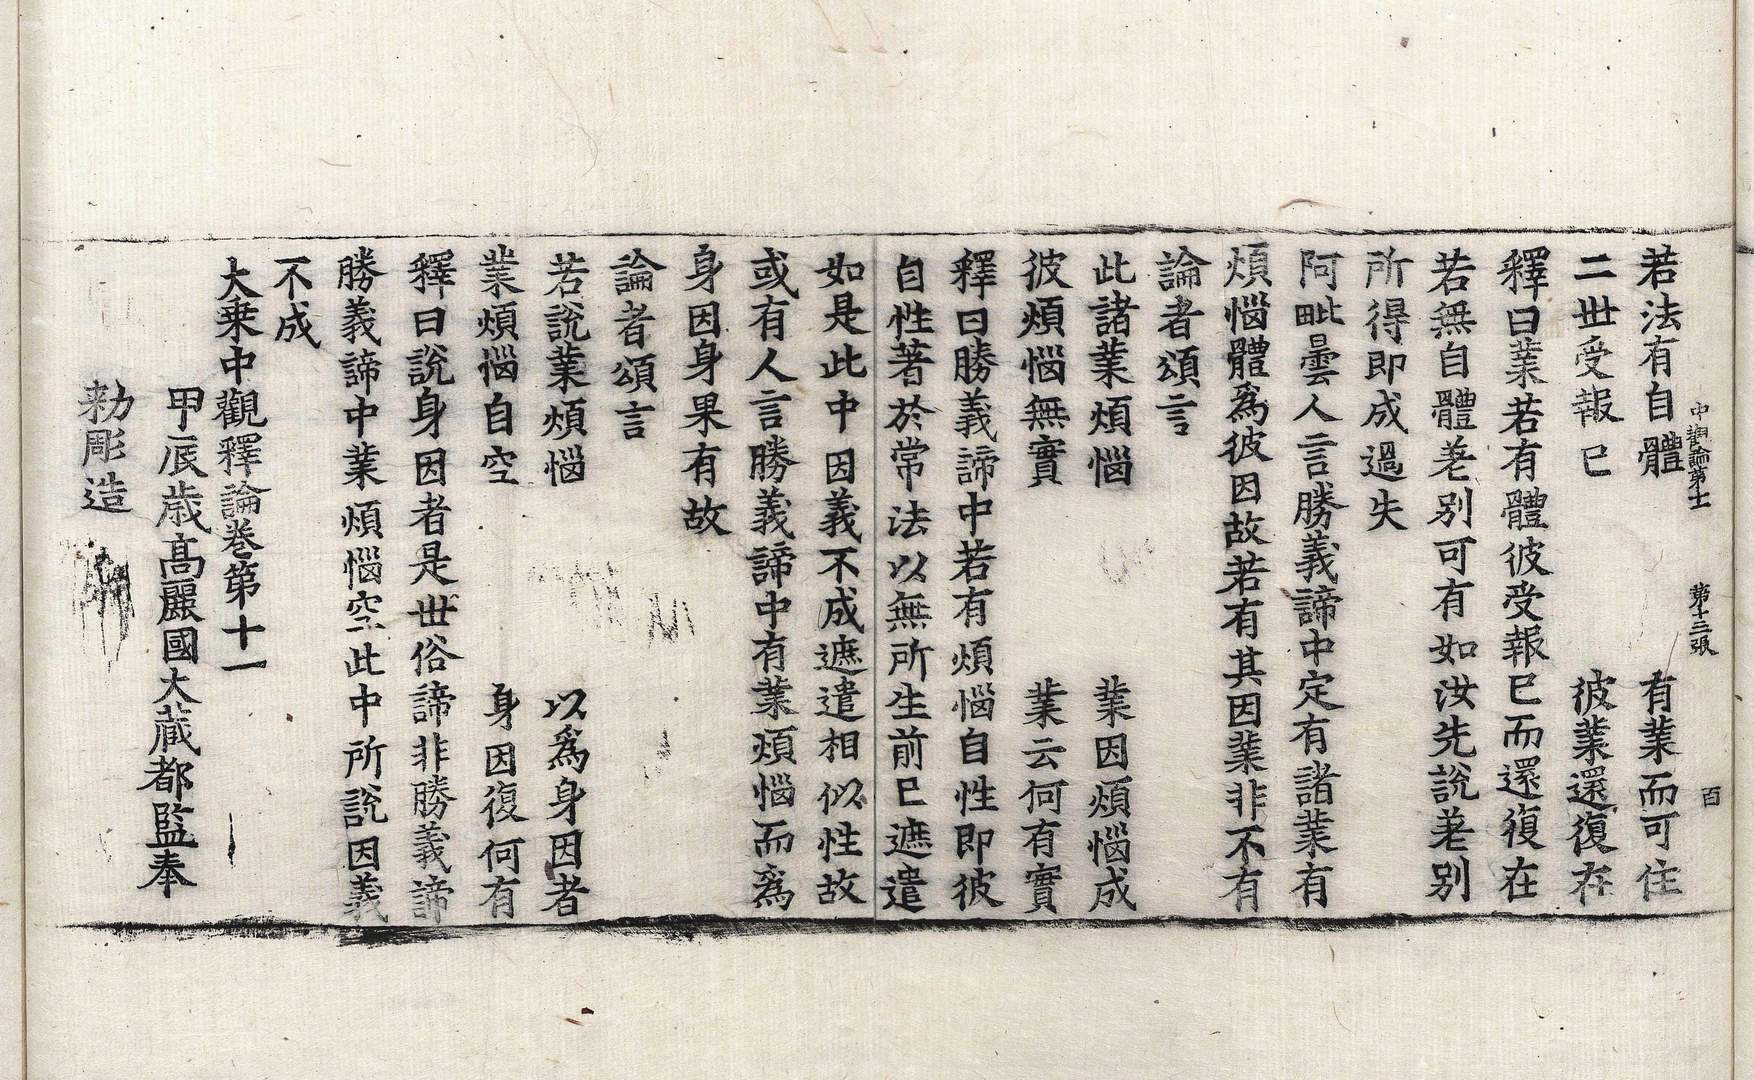 中觀論第十一 第十三張 百
若法有自體 有業而可住
二世受報已 彼業還復在
釋曰業若有體彼受報已而還復在
若無自體差別可有如汝先說差別
所得即成過失
阿毗曇人言勝義諦中定有諸業有
煩惱體爲彼因故若有其因業非不有
論者頌言
此諸業煩惱 業因煩惱成
彼煩惱無實 業云何有實
釋曰勝義諦中若有煩惱自性即彼
自性著於常法以無所生前已遮遣
如是此中因義不成遮遣相似性故
或有人言勝義諦中有業煩惱而爲
身因身果有故
論者頌言
若說業煩惱 以爲身因者
業煩惱自空 身因復何有
釋曰說身因者是世俗諦非勝義諦
勝義諦中業煩惱空此中所說因義
不成
大乗中觀釋論卷第十一
甲辰歲高麗國大藏都監奉
勑彫造